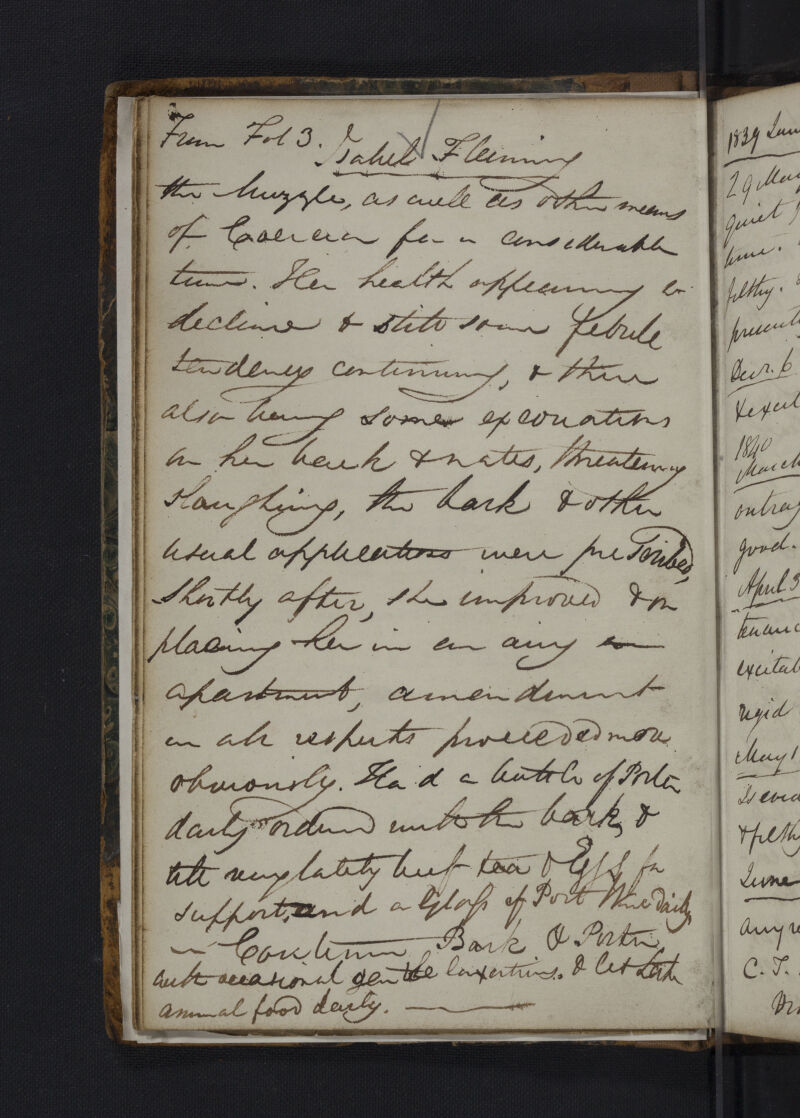 From Fol 3. Isabel Fleming
the Muzzle, as well as other means
of Coercion for a considerable
time. Her health appearing to
decline & still some febrile
tendency continuing, & there
also being some excoriations
on her back & nates, threatening
sloughing, the bark & other
usual applications were prescribed,
Shortly after, she improved & on
placing her in an airy
apartment, amendment
in all respects proceeded more
obviously. Had a bottle of Porter
daily ordered with the bark, &
till very lately beef tea & Eggs for
support, and a Glass of Port Wine daily
Continue Bark & Porter,
with occasional gentle laxatives. & let
animal food daily.
1839 June
29 May
quiet
time.
filthy.
Decr. 6
1840
March
good.
April 3
rigid
May 1
& filthy
June
any
C. T.